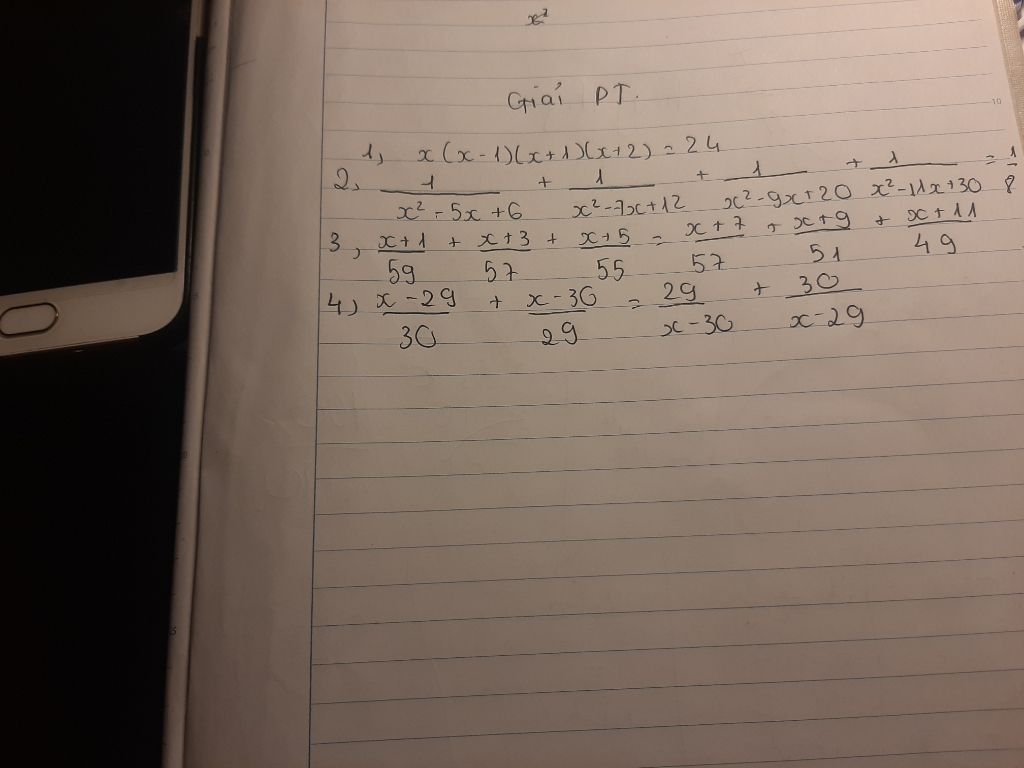 x²
Giải PT.
1, x(x-1)(x+1)(x+2) = 24
2, 1/(x² - 5x + 6) + 1/(x² - 7x + 12) + 1/(x² - 9x + 20) + 1/(x² - 11x + 30) = 1/8
3, (x+1)/59 + (x+3)/57 + (x+5)/55 = (x+7)/57 + (x+9)/51 + (x+11)/49
4) (x-29)/30 + (x-30)/29 = 29/(x-30) + 30/(x-29)